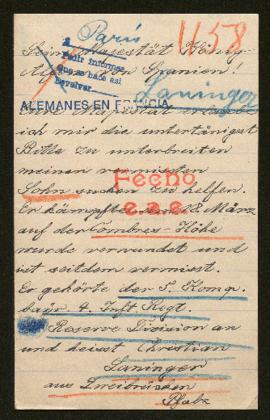 Paris
1158
Seine Majestät König
Pedir informes
que se hace así
Devolver
Alfons von Spanien!
Laninger
ALEMANES EN FRANCIA
Eure Majestät
ich mir die untertänigst
Bitte zu unterbreiten
meinen vermissten
Fecho
Sohn suchen zu helfen.
e.a.e.
Er kämpfte März
auf der Combres-Höhe
wurde verwundet und
ist seitdem vermisst.
Er gehörte der 5. Komp.
bayr. 4. Inft Regt.
Reserve Division an
und heisst Christian
Laninger
aus Zweibrücken
Pfalz